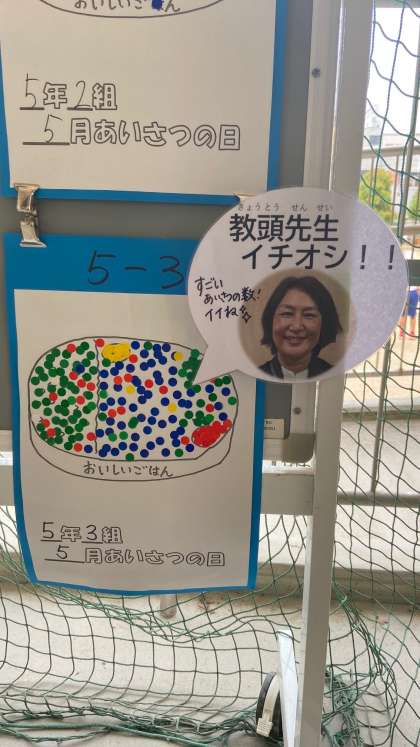 おいしいごはん
5年2組
5月あいさつの日
5-3
きょうとう せんせい
教頭先生
イチオシ!!
すごい
あいさつの数!
イイね
おいしいごはん
5年3組
5月あいさつの日